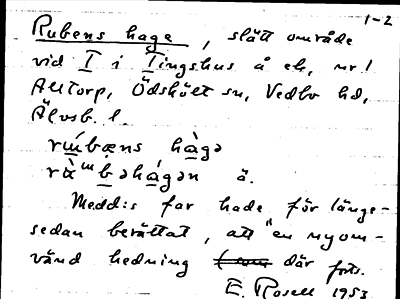 1-2
Rubens hage, slätt område
vid I i Tingshus å ek, nr 1
Alltorp, Ödskölt sn, Vedbo hd,
Älvsb. l.
hàgə
ä.
Medd:s far hade för länge-
sedan berättat, att "en nyom-
vänd hedning där forts.
E. Rosell 1953